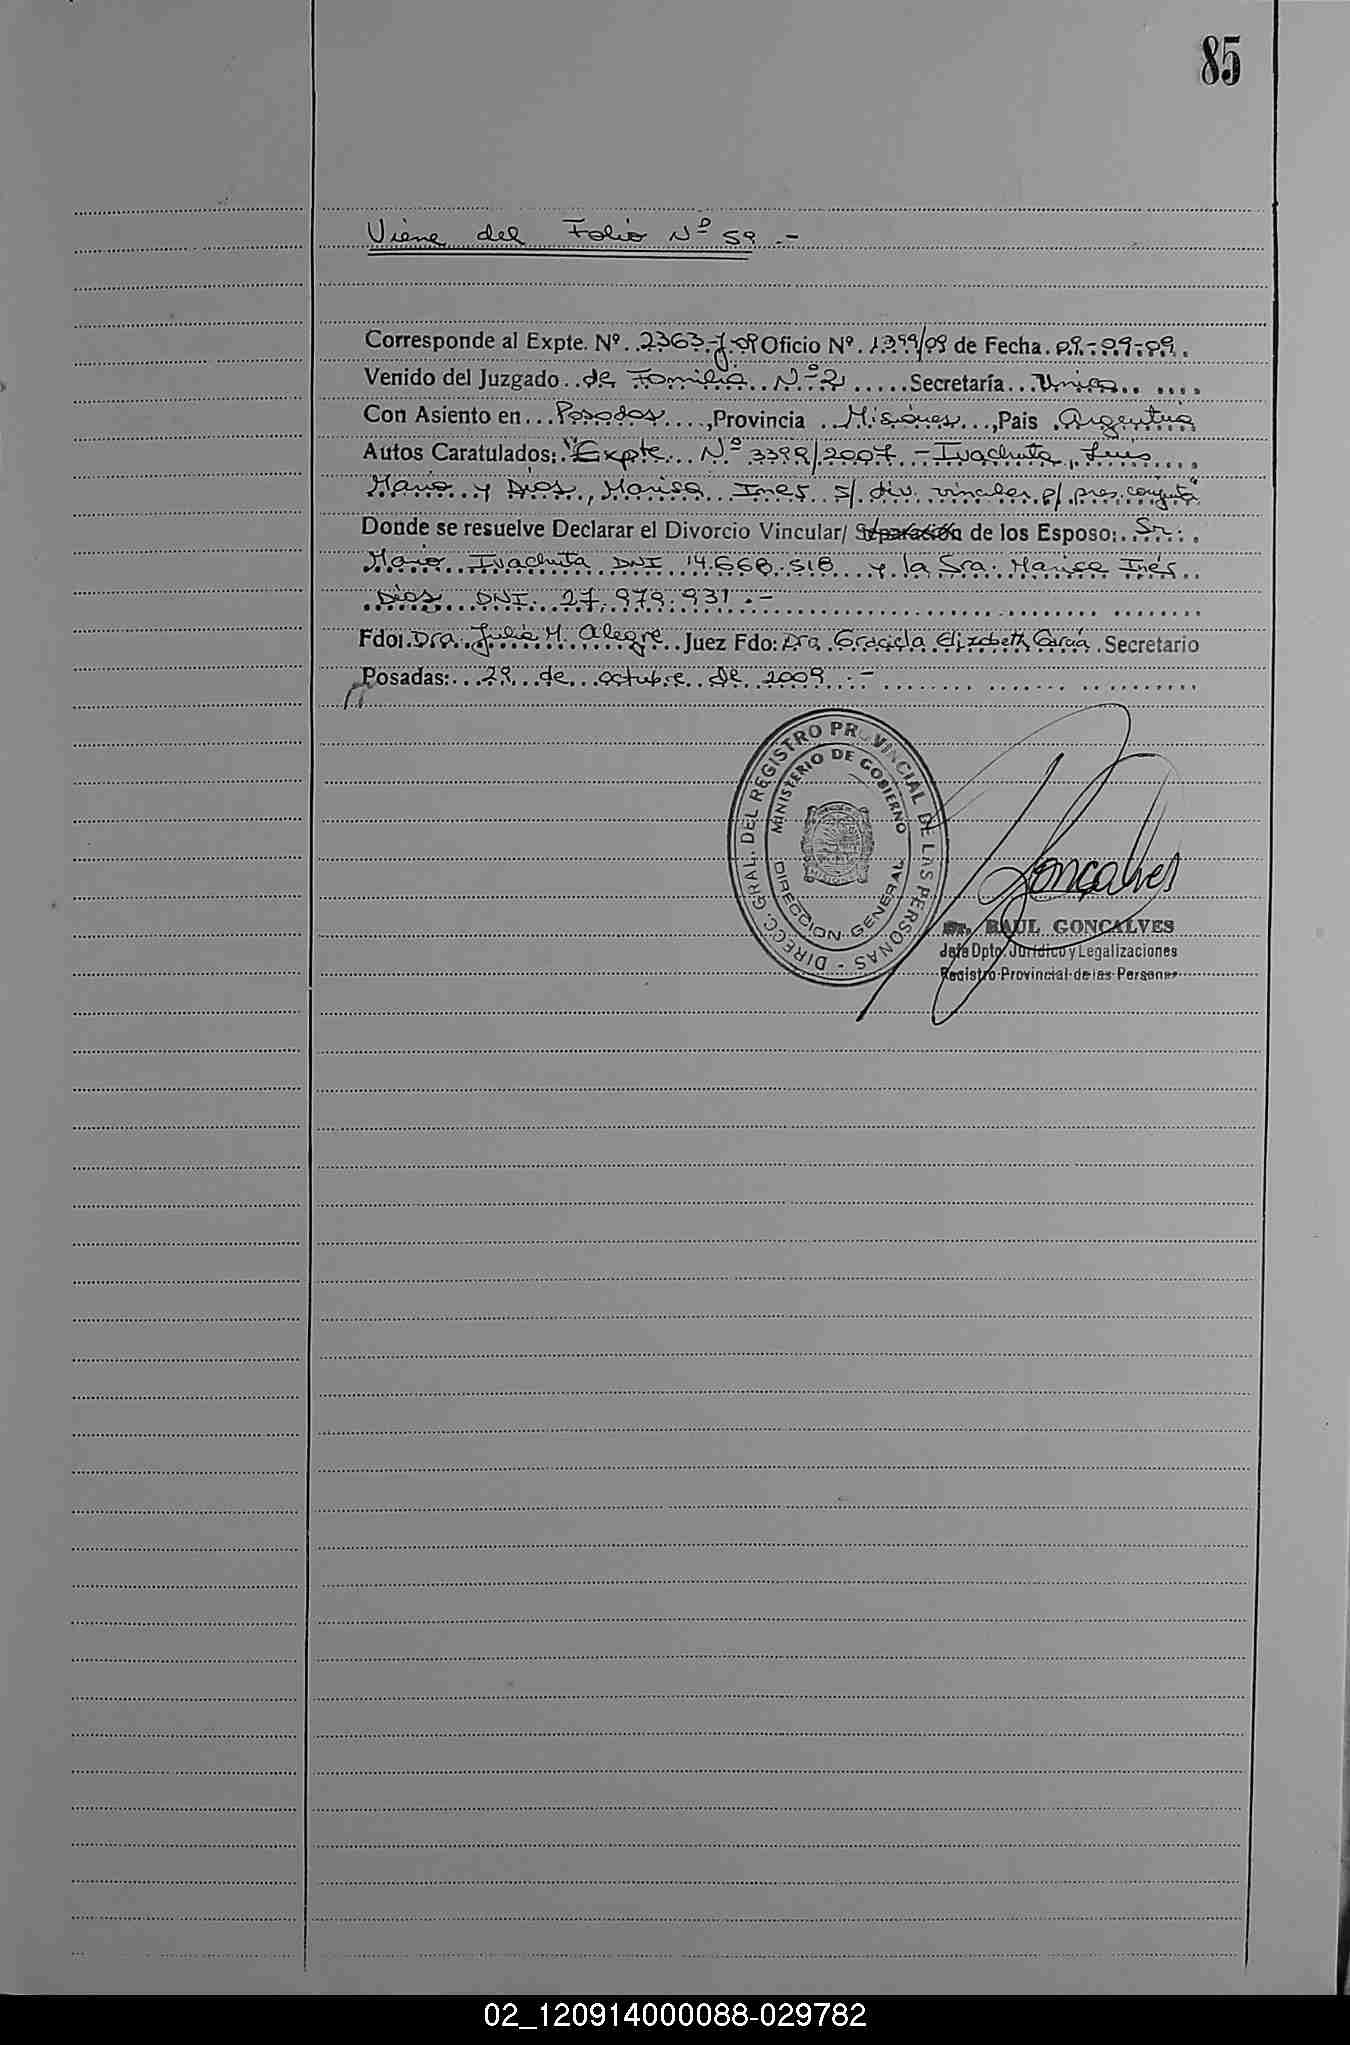 85
Viene del Folio Nº 59.-
Corresponde al Expte. Nº. 2363-J-09 Oficio Nº. 1399/09 de Fecha. 09-09-09.
Venido del Juzgado de Familia Nº 2 Secretaría Unica
Con Asiento en Posadas, Provincia Misiones, Pais Argentina
Autos Caratulados: "Expte Nº 3399/2007 - Ivachuta, Luis
Mario y Dios, Marisa Ines s/ div. vincular p/ pres. conjunta"
Donde se resuelve Declarar el Divorcio Vincular/ Separación de los Esposo: Sr.
Mario Ivachuta DNI 14.668.518 y la Sra. Marisa Inés
Dios DNI. 27.979.931.-
Fdo: Dra. Julia M. Alegre. Juez Fdo: Dra. Graciela Elizabeth García. Secretario
Posadas: 29 de octubre de 2009.-
DIRECC. GRAL. DEL REGISTRO PROVINCIAL DE LAS PERSONAS -
MINISTERIO DE GOBIERNO
DIRECCION GENERAL
Goncalves
Dr. RAUL GONCALVES
Jefe Dpto. Jurídico y Legalizaciones
Registro Provincial de las Personas
02_120914000088-029782